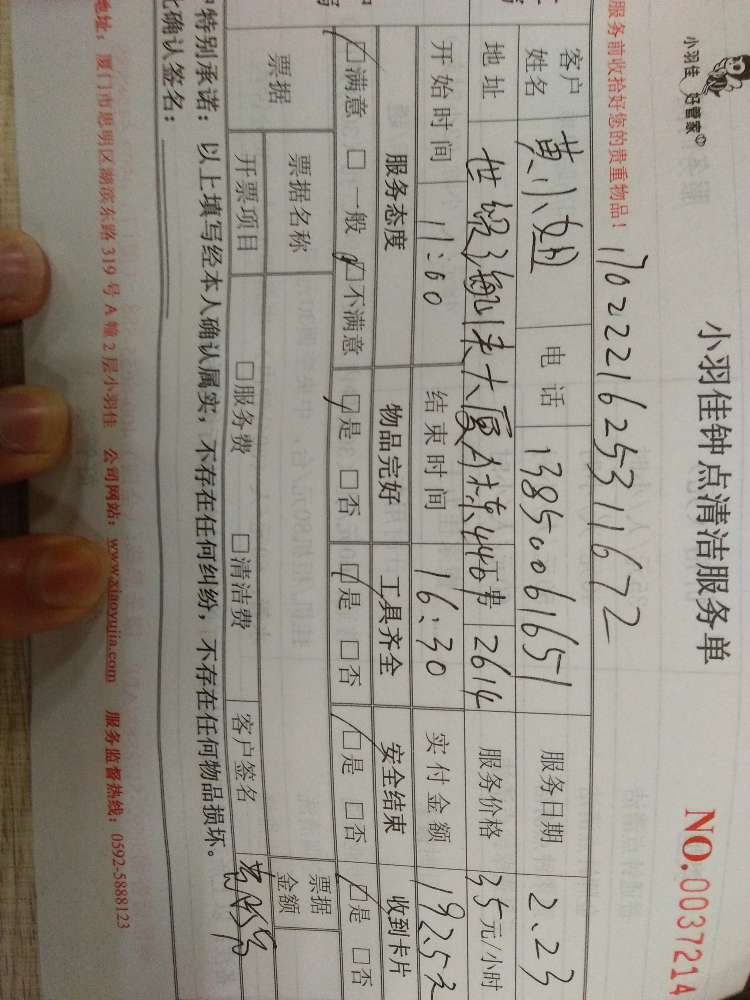 小羽佳 好管家
小羽佳钟点清洁服务单
NO.0037214
服务前收拾好您的贵重物品！
1702221625311672
客户姓名 黄小姐 电话 13850061651 服务日期 2.23
地址 世贸海峡大厦A栋 2614 服务价格 35元/小时
开始时间 11:00 结束时间 16:30 实付金额 192.5元
服务态度 物品完好 工具齐全 安全结束 收到卡片
□满意 □一般 □不满意 □是 □否 □是 □否 □是 □否 □是 □否
票据 票据名称 票据金额
开票项目 □服务费 □清洁费 客户签名
特别承诺：以上填写经本人确认属实，不存在任何纠纷，不存在任何物品损坏。
确认签名：
地址：厦门市思明区湖滨东路319号A幢2层小羽佳 公司网站：www.xiaoyujia.com 服务监督热线：0592-5888123